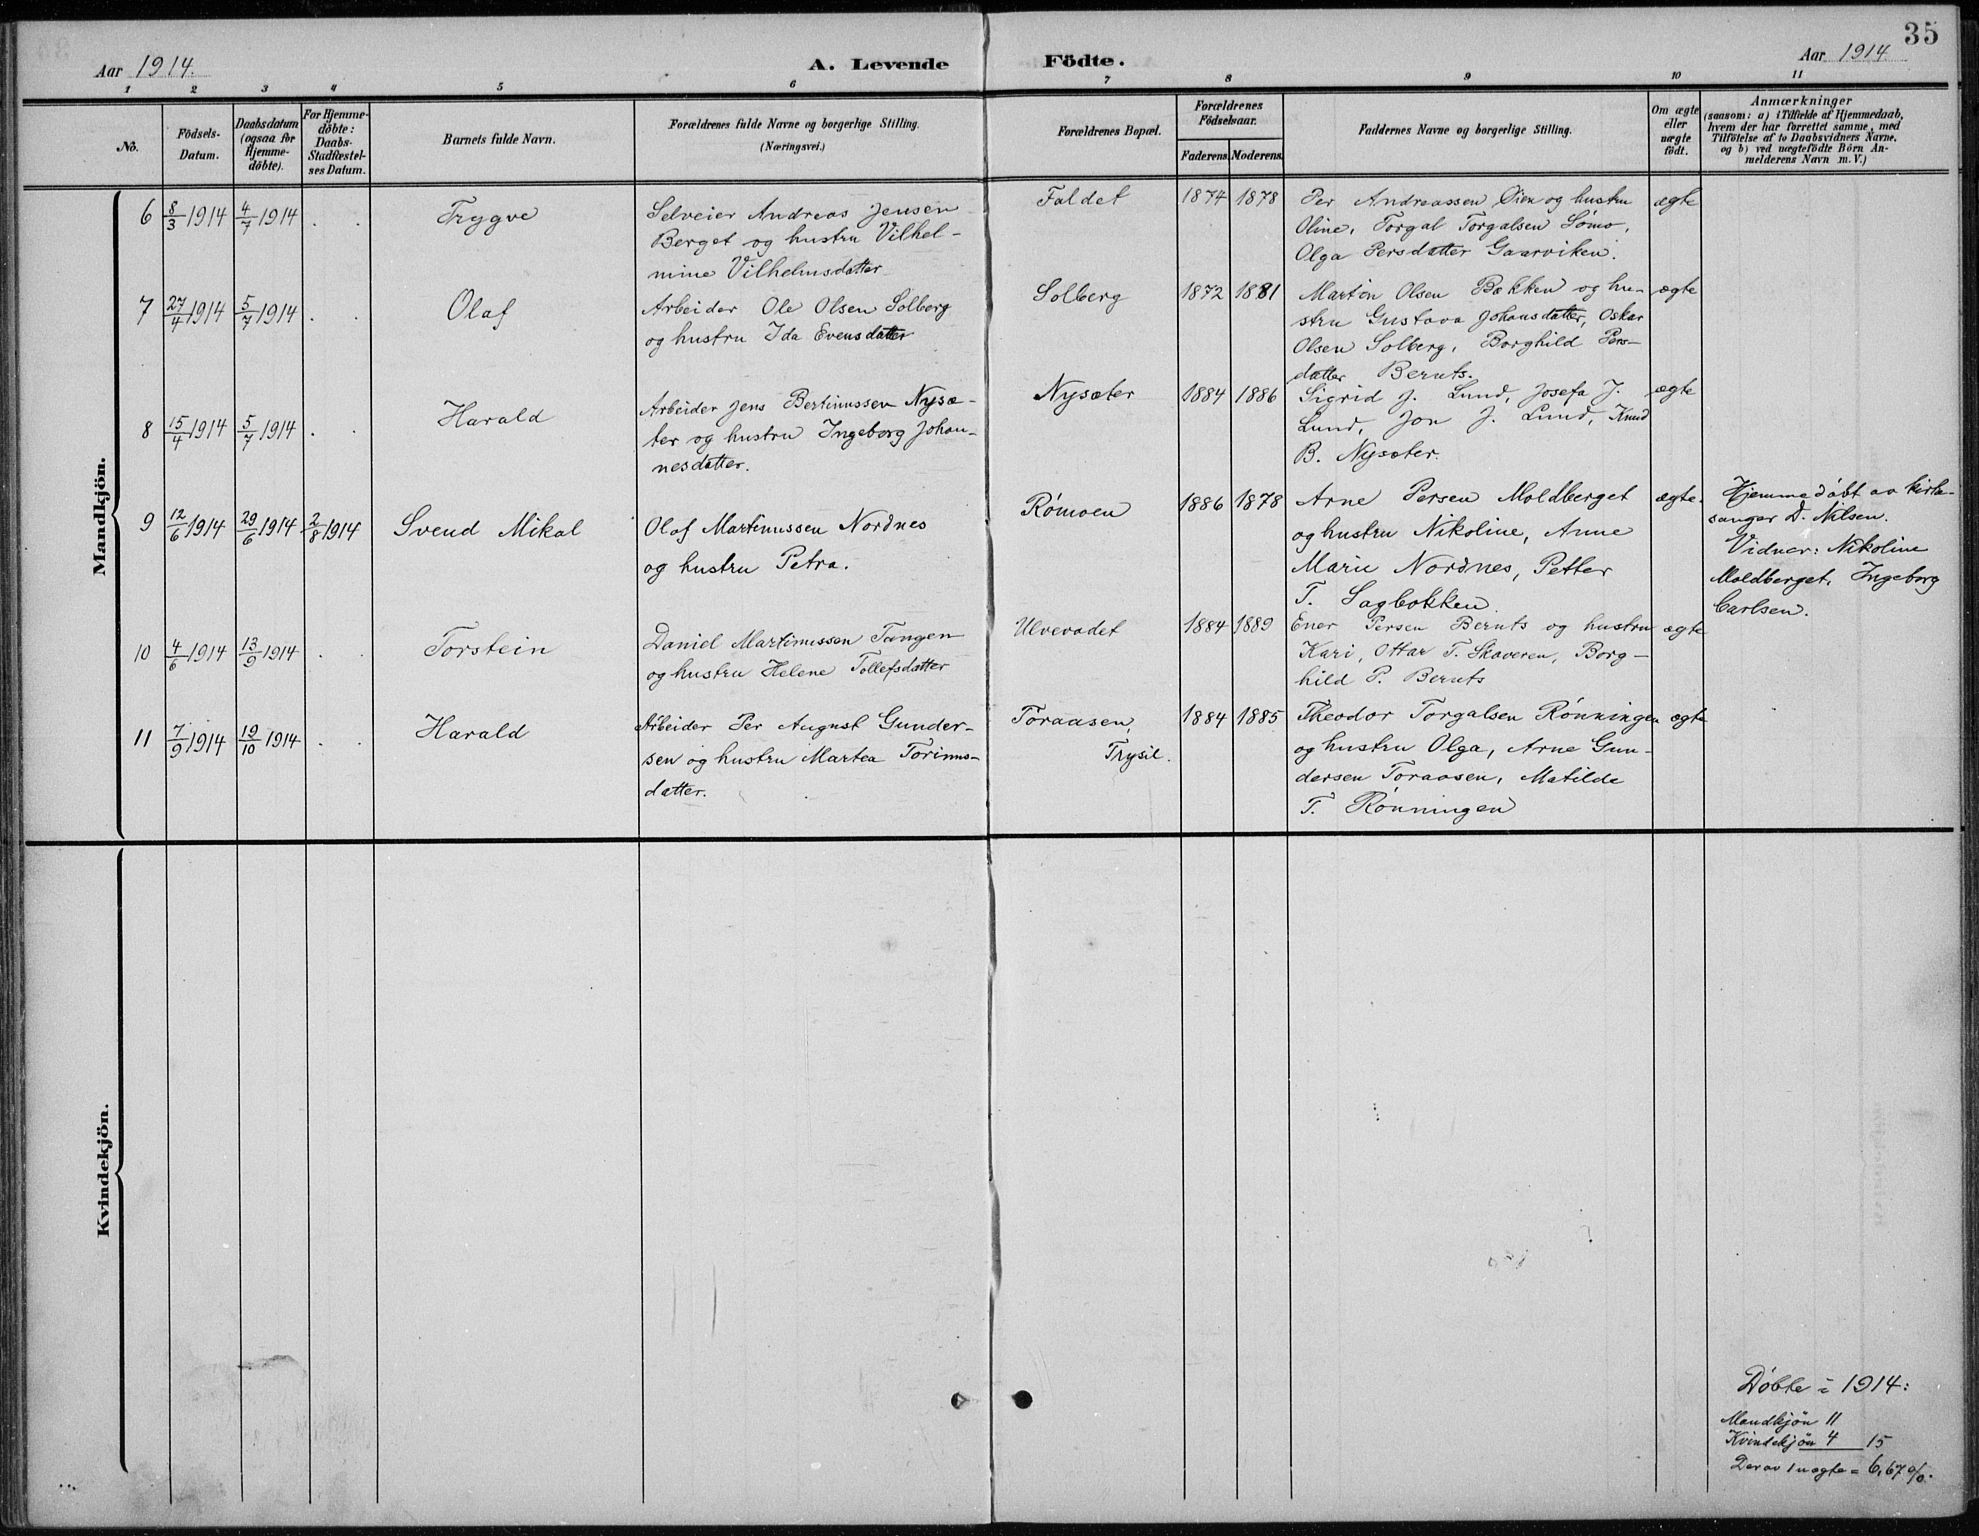 35
Aar 1914.
A. Levende Födte.
Aar 1914
1 2 3 4 5 6 7 8 9 10 11
No.
Födsels-
Datum.
Daabsdatum
(ogsaa for
Hjemme-
döbte).
For Hjemme-
döbte:
Daabs-
Stadfæstel-
ses Datum.
Barnets fulde Navn.
Forældrenes fulde Navne og borgerlige Stilling.
(Næringsvei.)
Forældrenes Bopæl.
Forældrenes
Födselsaar.
Faderens. Moderens.
Faddernes Navne og borgerlige Stilling.
Om ægte
eller
uægte
födt.
Anmærkninger
(saasom: a) i Tilfælde af Hjemmedaab,
hvem der har forrettet samme, med
Tilföielse af to Daabsvidners Navne,
og b) ved uægtefödte Börn An-
melderens Navn m. V.)
Mandkjön.
6 8/3 1914 4/7 1914 . . Trygve
Selveier Andreas Jensen
Berget og hustru Vilhel-
mine Vilhelmsdatter
Faldet 1874 1878
Per Andreassen Øien og hustru
Oline, Torgal Torgalsen Sømo,
Olga Persdatter Gaarviken.
ægte
7 27/4 1914 5/7 1914 . . Olaf
Arbeider Ole Olsen Solberg
og hustru Ida Evensdatter
Solberg 1872 1881
Martin Olsen Bækken og hu-
stru Gustava Johansdatter, Oskar
Olsen Solberg, Borghild Pers-
datter Bernts.
ægte
8 15/4 1914 5/7 1914 . . Harald
Arbeider Jens Bertinussen Nysæ-
ter og hustru Ingeborg Johan-
nesdatter.
Nysæter 1884 1886
Sigrid J. Lund, Josefa J.
Lund, Jon J. Lund, Knud
B. Nysæter.
ægte
9 12/6 1914 29/6 1914 2/8 1914 Svend Mikal
Olaf Martinussen Nordnes
og hustru Petra.
Rømoen 1886 1878
Arne Persen Moldberget
og hustru Nikoline, Anne
Marie Nordnes, Petter
T. Sagbakken
ægte.
Hjemmedøbt av kirke-
sanger D. Nilsen.
Vidner: Nikoline
Moldberget, Ingeborg
Carlsen.
10 4/6 1914 13/9 1914 . . Torstein
Daniel Martinussen Tangen
og hustru Helene Tollefsdatter
Ulvevadet 1884 1889
Ener Persen Bernts og hustru
Kari, Ottar T. Skaveren, Borg-
hild P. Bernts
ægte
11 7/9 1914 19/10 1914 . . Harald
Arbeider Per August Gunder-
sen og hustru Martea Torinus-
datter.
Toraasen,
Trysil.
1884 1885
Theodor Torgalsen Rønningen
og hustru Olga, Arne Gun-
dersen Toraasen, Matilde
T. Rønningen
ægte
Kvindekjön.
Døbte i 1914:
Mandkjön 11
Kvindekjön 4 15
Derav 1 uægte = 6,67 %.